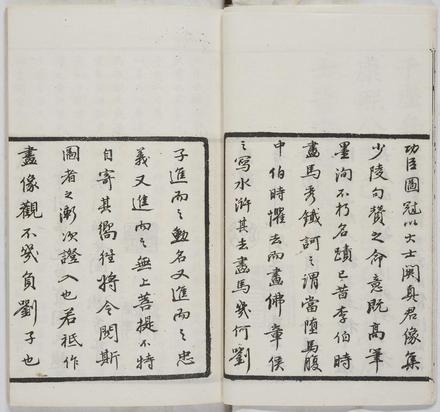 功臣圖冠以大士關真君像集
少陵句贊之命意既高筆
墨洵不朽名蹟已昔李伯時
畫馬秀鐵訶之謂當墮馬腹
中伯時懼去而畫佛章侯
之寫水滸其去畫馬幾何劉
子進而之勳名又進而之忠
義又進而之無上菩提不特
自寄其嚮往將令閱斯
圖者之漸次證入也若祗作
畫像觀不幾負劉子也